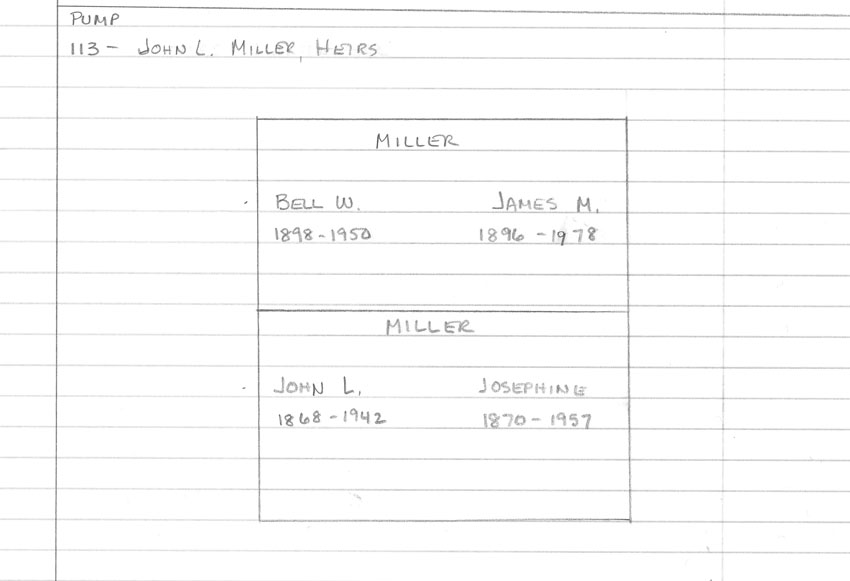 PUMP
113 - JOHN L. MILLER, HEIRS
MILLER
BELL W. JAMES M.
1898-1950 1896-1978
MILLER
JOHN L. JOSEPHINE
1868-1942 1870-1957